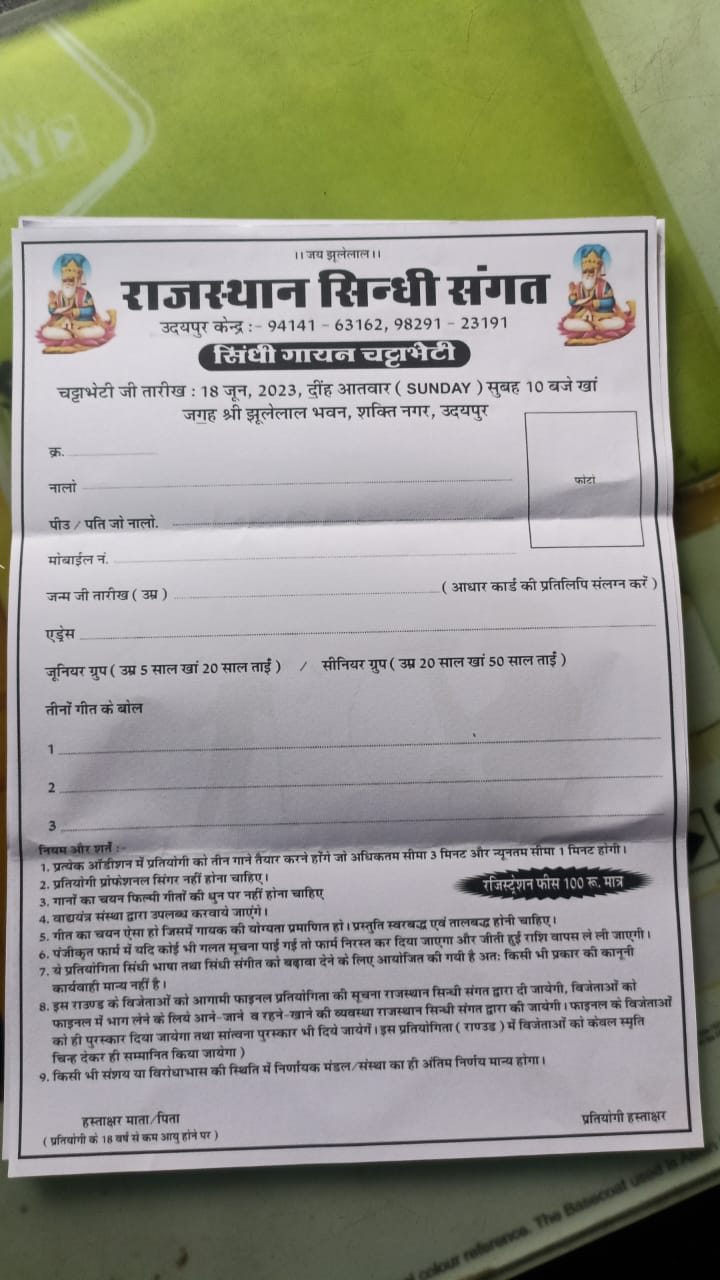 ।। जय झूलेलाल।।
राजस्थान सिन्धी संगत
उदयपुर केन्द्र :- 94141 - 63162, 98291 - 23191
सिंधी गायन चट्टाभेटी
चट्टाभेटी जी तारीख : 18 जून, 2023, दींह आतवार ( SUNDAY ) सुबह 10 बजे खां
जगह श्री झूलेलाल भवन, शक्ति नगर, उदयपुर
क्र.
फोटो
नालो
पीउ / पति जो नालो.
मोबाईल नं.
जन्म जी तारीख ( उम्र ) ( आधार कार्ड की प्रतिलिपि संलग्न करें )
एड्रेस
जूनियर ग्रुप ( उम्र 5 साल खां 20 साल ताईं ) / सीनियर ग्रुप ( उम्र 20 साल खां 50 साल ताईं )
तीनों गीत के बोल
1
2
3
नियम और शर्ते :-
1. प्रत्येक ऑडीशन में प्रतियोगी को तीन गाने तैयार करने होंगे जो अधिकतम सीमा 3 मिनट और न्यूनतम सीमा 1 मिनट होगी।
2. प्रतियोगी प्रोफेशनल सिंगर नहीं होना चाहिए।
रजिस्ट्रेशन फीस 100 रू. मात्र
3. गानों का चयन फिल्मी गीतों की धुन पर नहीं होना चाहिए
4. वाद्ययंत्र संस्था द्वारा उपलब्ध करवाये जाएंगे।
5. गीत का चयन ऐसा हो जिसमें गायक की योग्यता प्रमाणित हो। प्रस्तुति स्वरबद्ध एवं तालबद्ध होनी चाहिए।
6. पंजीकृत फार्म में यदि कोई भी गलत सूचना पाई गई तो फार्म निरस्त कर दिया जाएगा और जीती हुई राशि वापस ले ली जाएगी।
7. ये प्रतियोगिता सिंधी भाषा तथा सिंधी संगीत को बढ़ावा देने के लिए आयोजित की गयी है अतः किसी भी प्रकार की कानूनी
कार्यवाही मान्य नहीं है।
8. इस राउण्ड के विजेताओं को आगामी फाइनल प्रतियोगिता की सूचना राजस्थान सिन्धी संगत द्वारा दी जायेगी, विजेताओं को
फाइनल में भाग लेने के लिये आने-जाने व रहने-खाने की व्यवस्था राजस्थान सिन्धी संगत द्वारा की जायेगी। फाइनल के विजेताओं
को ही पुरस्कार दिया जायेगा तथा सांत्वना पुरस्कार भी दिये जायेगें। इस प्रतियोगिता ( राउण्ड ) में विजेताओं को केवल स्मृति
चिन्ह देकर ही सम्मानित किया जायेगा )
9. किसी भी संशय या विरोधाभास की स्थिति में निर्णायक मंडल/संस्था का ही अंतिम निर्णय मान्य होगा।
हस्ताक्षर माता/पिता
प्रतियोगी हस्ताक्षर
( प्रतियोगी के 18 वर्ष से कम आयु होने पर )
colour reference. The Basecoat used is